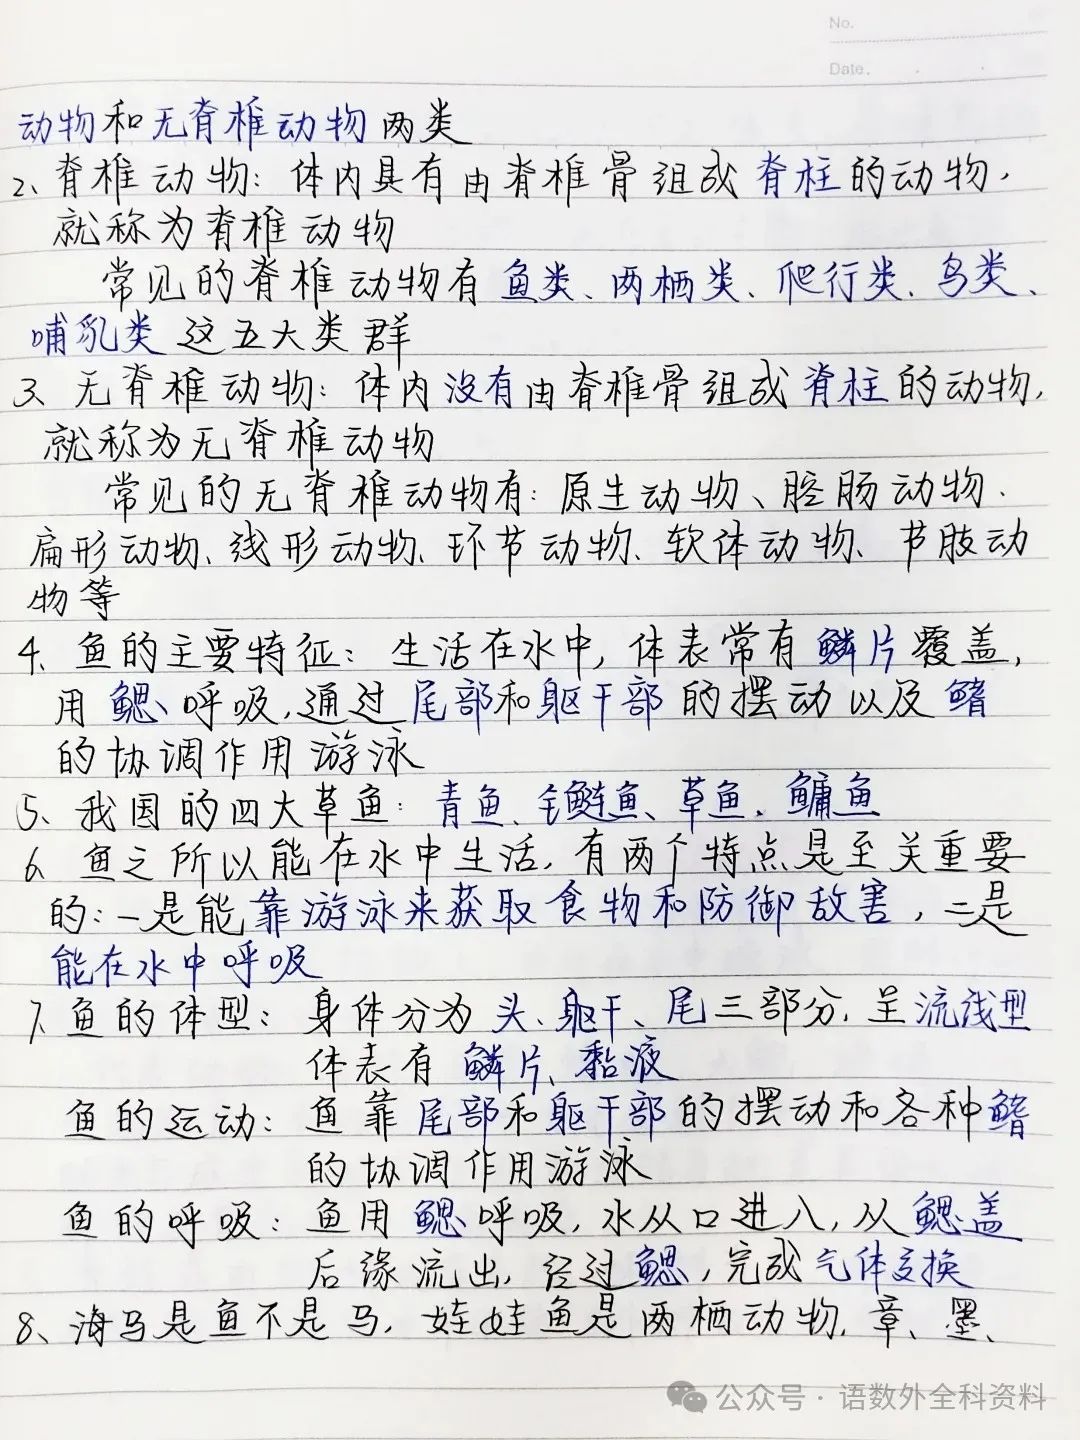 No.
Date.
动物和无脊椎动物两类
2、脊椎动物：体内具有由脊椎骨组成脊柱的动物，
就称为脊椎动物
常见的脊椎动物有鱼类、两栖类、爬行类、鸟类、
哺乳类这五大类群
3、无脊椎动物：体内没有由脊椎骨组成脊柱的动物，
就称为无脊椎动物
常见的无脊椎动物有：原生动物、腔肠动物、
扁形动物、线形动物、环节动物、软体动物、节肢动
物等
4、鱼的主要特征：生活在水中，体表常有鳞片覆盖，
用鳃呼吸，通过尾部和躯干部的摆动以及鳍
的协调作用游泳
5、我国的四大草鱼：青鱼、鲢鱼、草鱼、鳙鱼
6、鱼之所以能在水中生活，有两个特点是至关重要
的：一是能靠游泳来获取食物和防御敌害，二是
能在水中呼吸
7、鱼的体型：身体分为头、躯干、尾三部分，呈流线型
体表有鳞片、黏液
鱼的运动：鱼靠尾部和躯干部的摆动和各种鳍
的协调作用游泳
鱼的呼吸：鱼用鳃呼吸，水从口进入，从鳃盖
后缘流出，经过鳃，完成气体交换
8、海马是鱼不是马，娃娃鱼是两栖动物，章、墨、
公众号·语数外全科资料